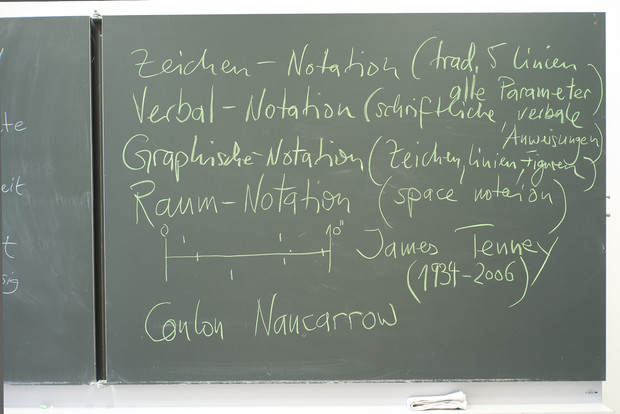 te
eit
t
sig
Zeichen – Notation (trad. 5 Linien
alle Parameter)
Verbal – Notation (schriftliche, verbale
Anweisungen)
Graphische-Notation (Zeichen, Linien, Figuren)
Raum – Notation (space notation)
0 10"
James Tenney
(1934–2006)
Conlon Nancarrow